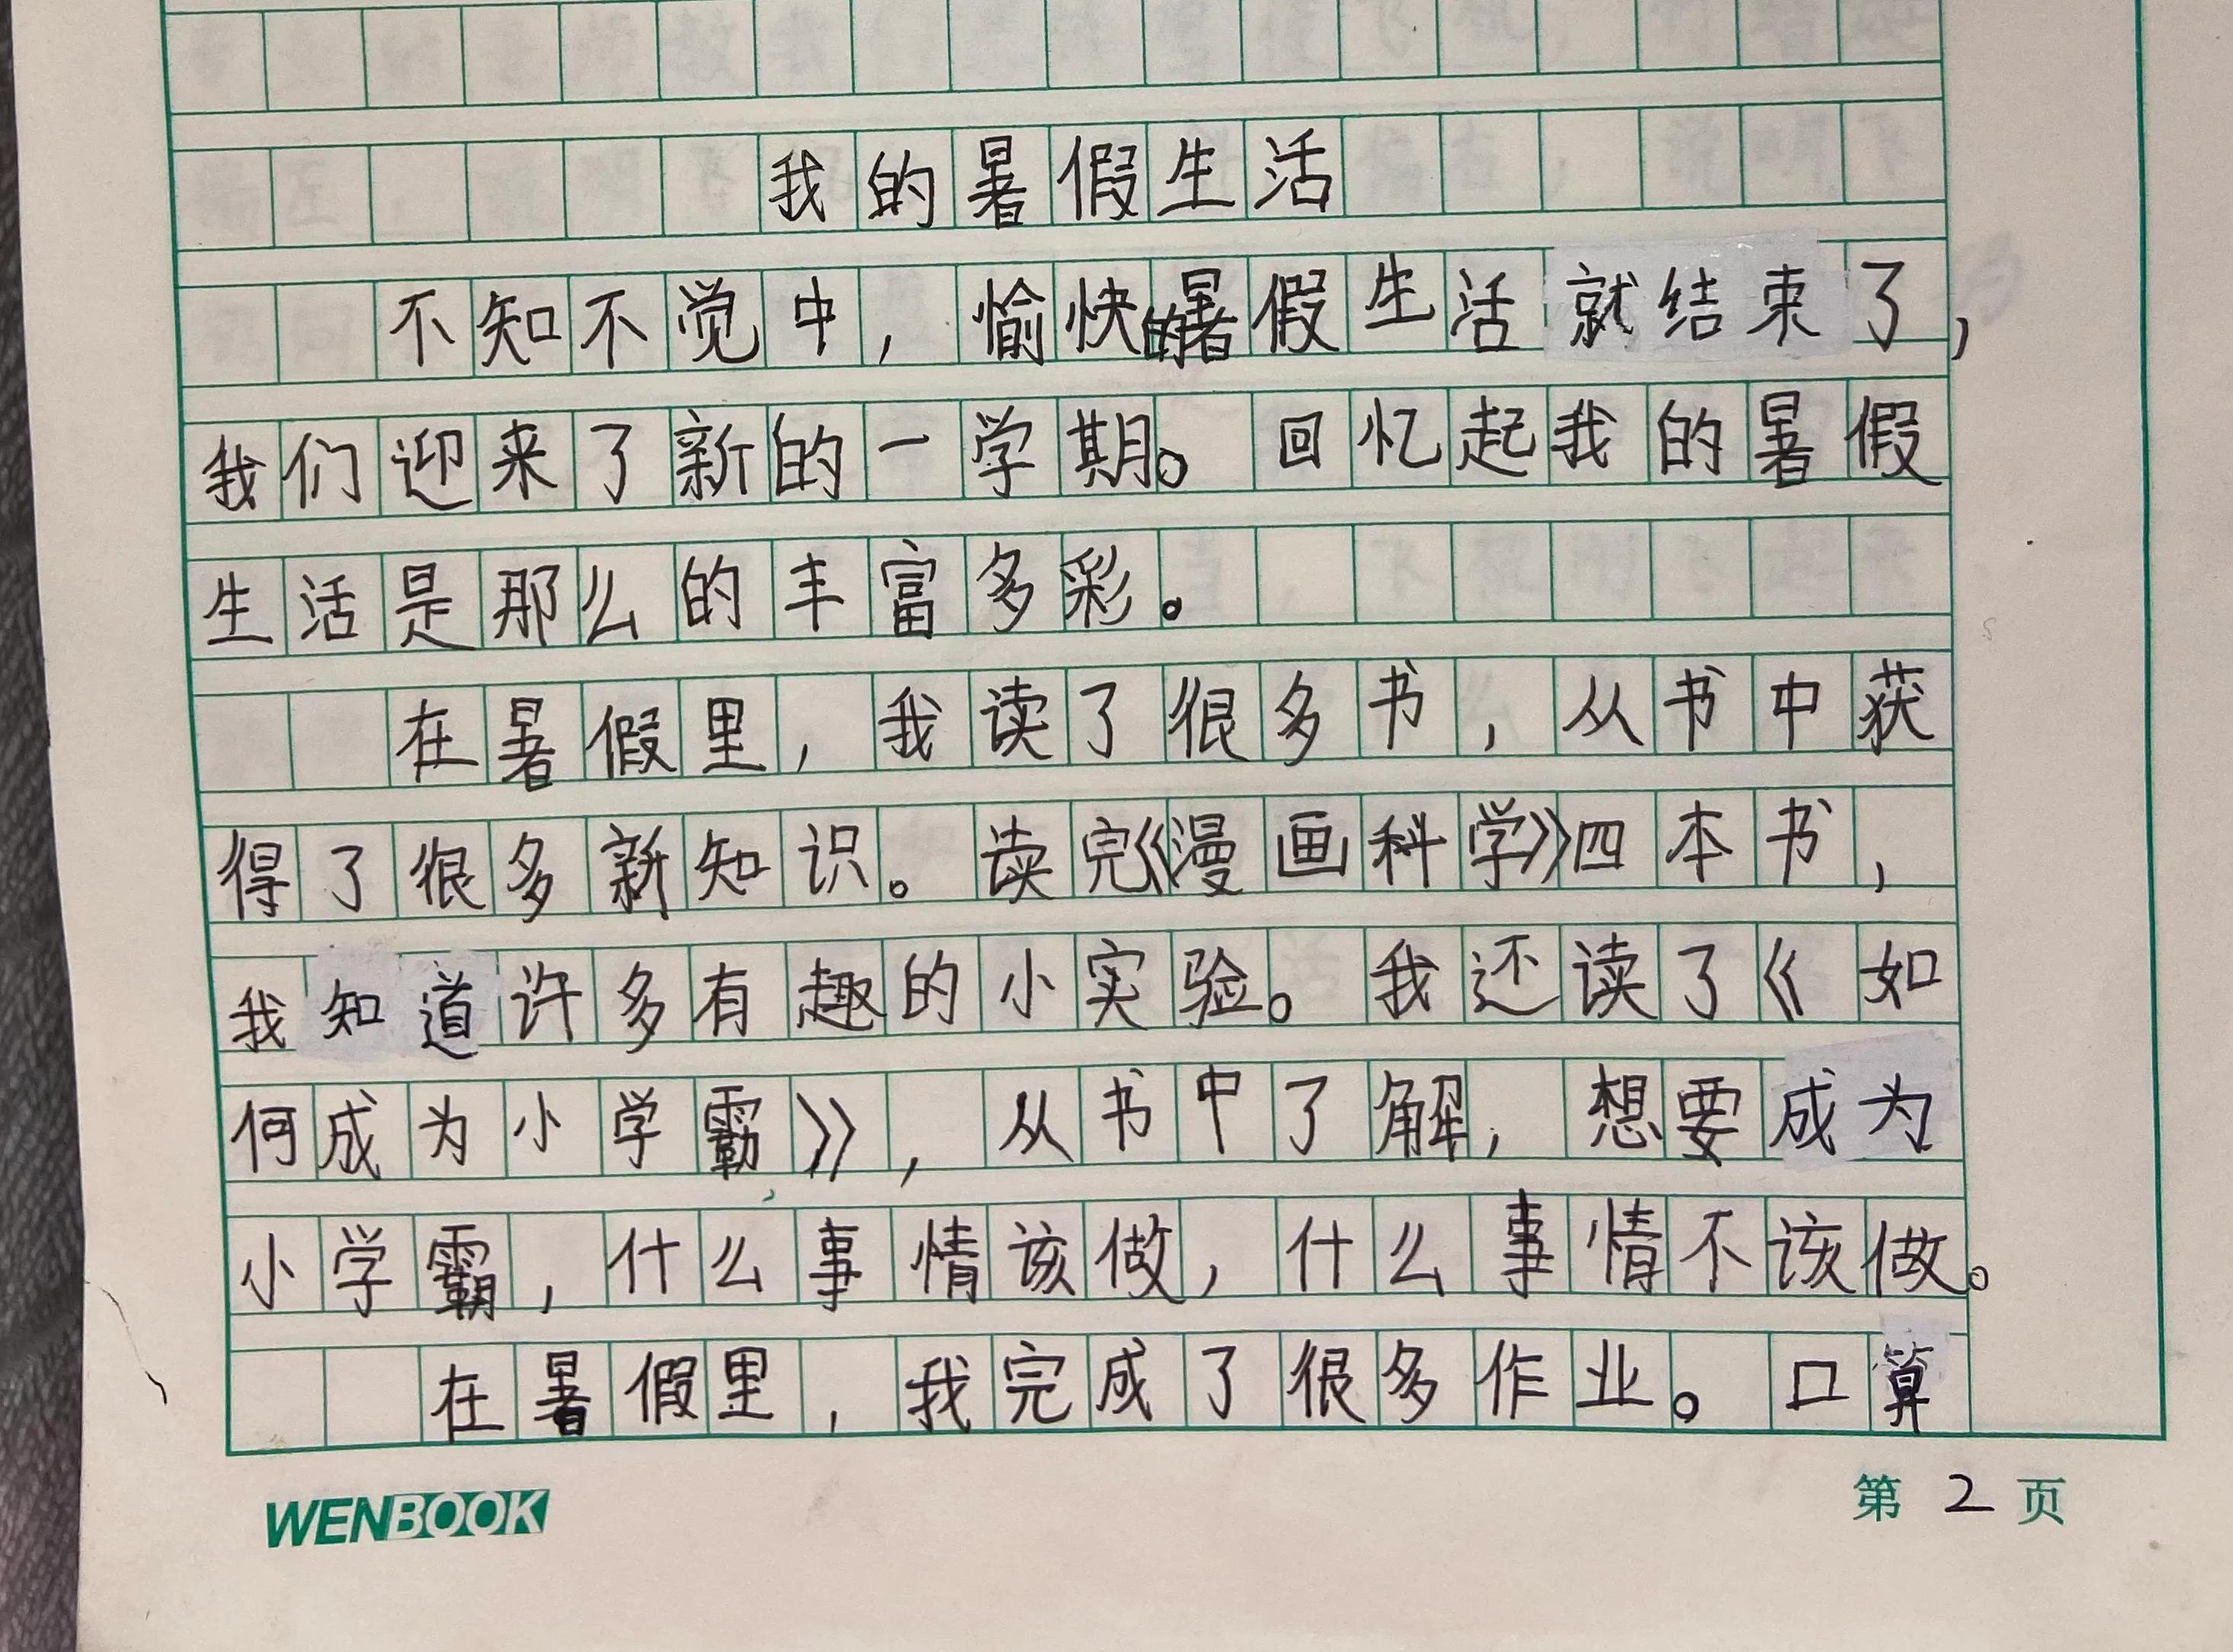 我的暑假生活
不知不觉中，愉快的暑假生活就结束了，
我们迎来了新的一学期。回忆起我的暑假
生活是那么的丰富多彩。
在暑假里，我读了很多书，从书中获
得了很多新知识。读完《漫画科学》四本书，
我知道许多有趣的小实验。我还读了《如
何成为小学霸》，从书中了解，想要成为
小学霸，什么事情该做，什么事情不该做。
在暑假里，我完成了很多作业。口算
WENBOOK
第2页